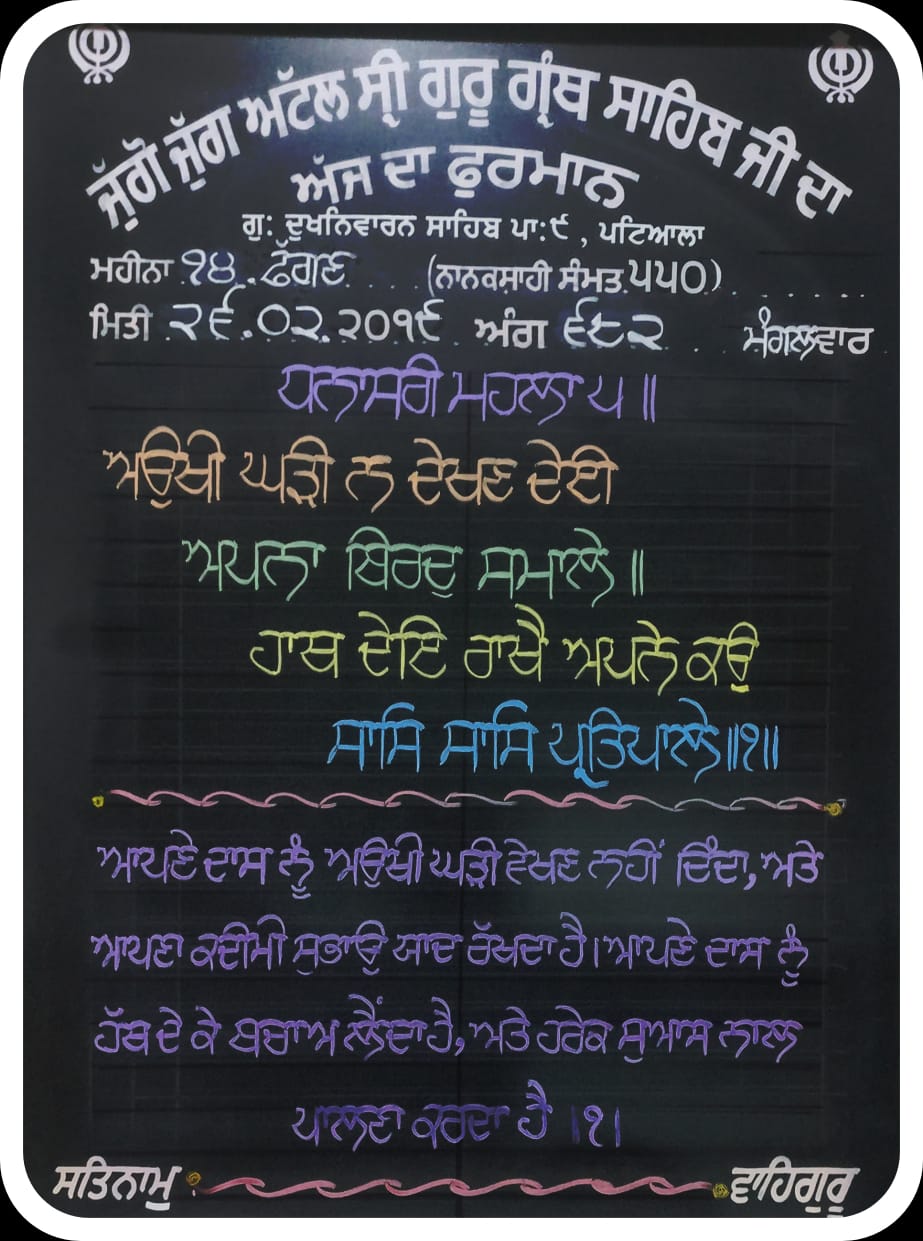 ਜੁੱਗੋ ਜੁੱਗ ਅੱਟਲ ਸ੍ਰੀ ਗੁਰੂ ਗ੍ਰੰਥ ਸਾਹਿਬ ਜੀ ਦਾ
ਅੱਜ ਦਾ ਫੁਰਮਾਨ
ਗੁ: ਦੁਖਨਿਵਾਰਨ ਸਾਹਿਬ ਪਾ:੯ , ਪਟਿਆਲਾ
ਮਹੀਨਾ ੧੪ ਫੱਗਣ (ਨਾਨਕਸ਼ਾਹੀ ਸੰਮਤ ੫੫੦)
ਮਿਤੀ ੨੬.੦੨.੨੦੧੯ ਅੰਗ ੬੮੨ ਮੰਗਲਵਾਰ
ਧਨਾਸਰੀ ਮਹਲਾ ੫ ॥
ਅਉਖੀ ਘੜੀ ਨ ਦੇਖਣ ਦੇਈ
ਅਪਨਾ ਬਿਰਦੁ ਸਮਾਲੇ ॥
ਹਾਥ ਦੇਇ ਰਾਖੈ ਅਪਨੇ ਕਉ
ਸਾਸਿ ਸਾਸਿ ਪ੍ਰਤਿਪਾਲੇ ॥੧॥
ਆਪਣੇ ਦਾਸ ਨੂੰ ਅਉਖੀ ਘੜੀ ਵੇਖਣ ਨਹੀਂ ਦਿੰਦਾ, ਅਤੇ
ਆਪਣਾ ਕਦੀਮੀ ਸੁਭਾਉ ਯਾਦ ਰੱਖਦਾ ਹੈ। ਆਪਣੇ ਦਾਸ ਨੂੰ
ਹੱਥ ਦੇ ਕੇ ਬਚਾਅ ਲੈਂਦਾ ਹੈ, ਅਤੇ ਹਰੇਕ ਸੁਆਸ ਨਾਲ
ਪਾਲਣਾ ਕਰਦਾ ਹੈ ।੧।
ਸਤਿਨਾਮੁ ਵਾਹਿਗੁਰੂ